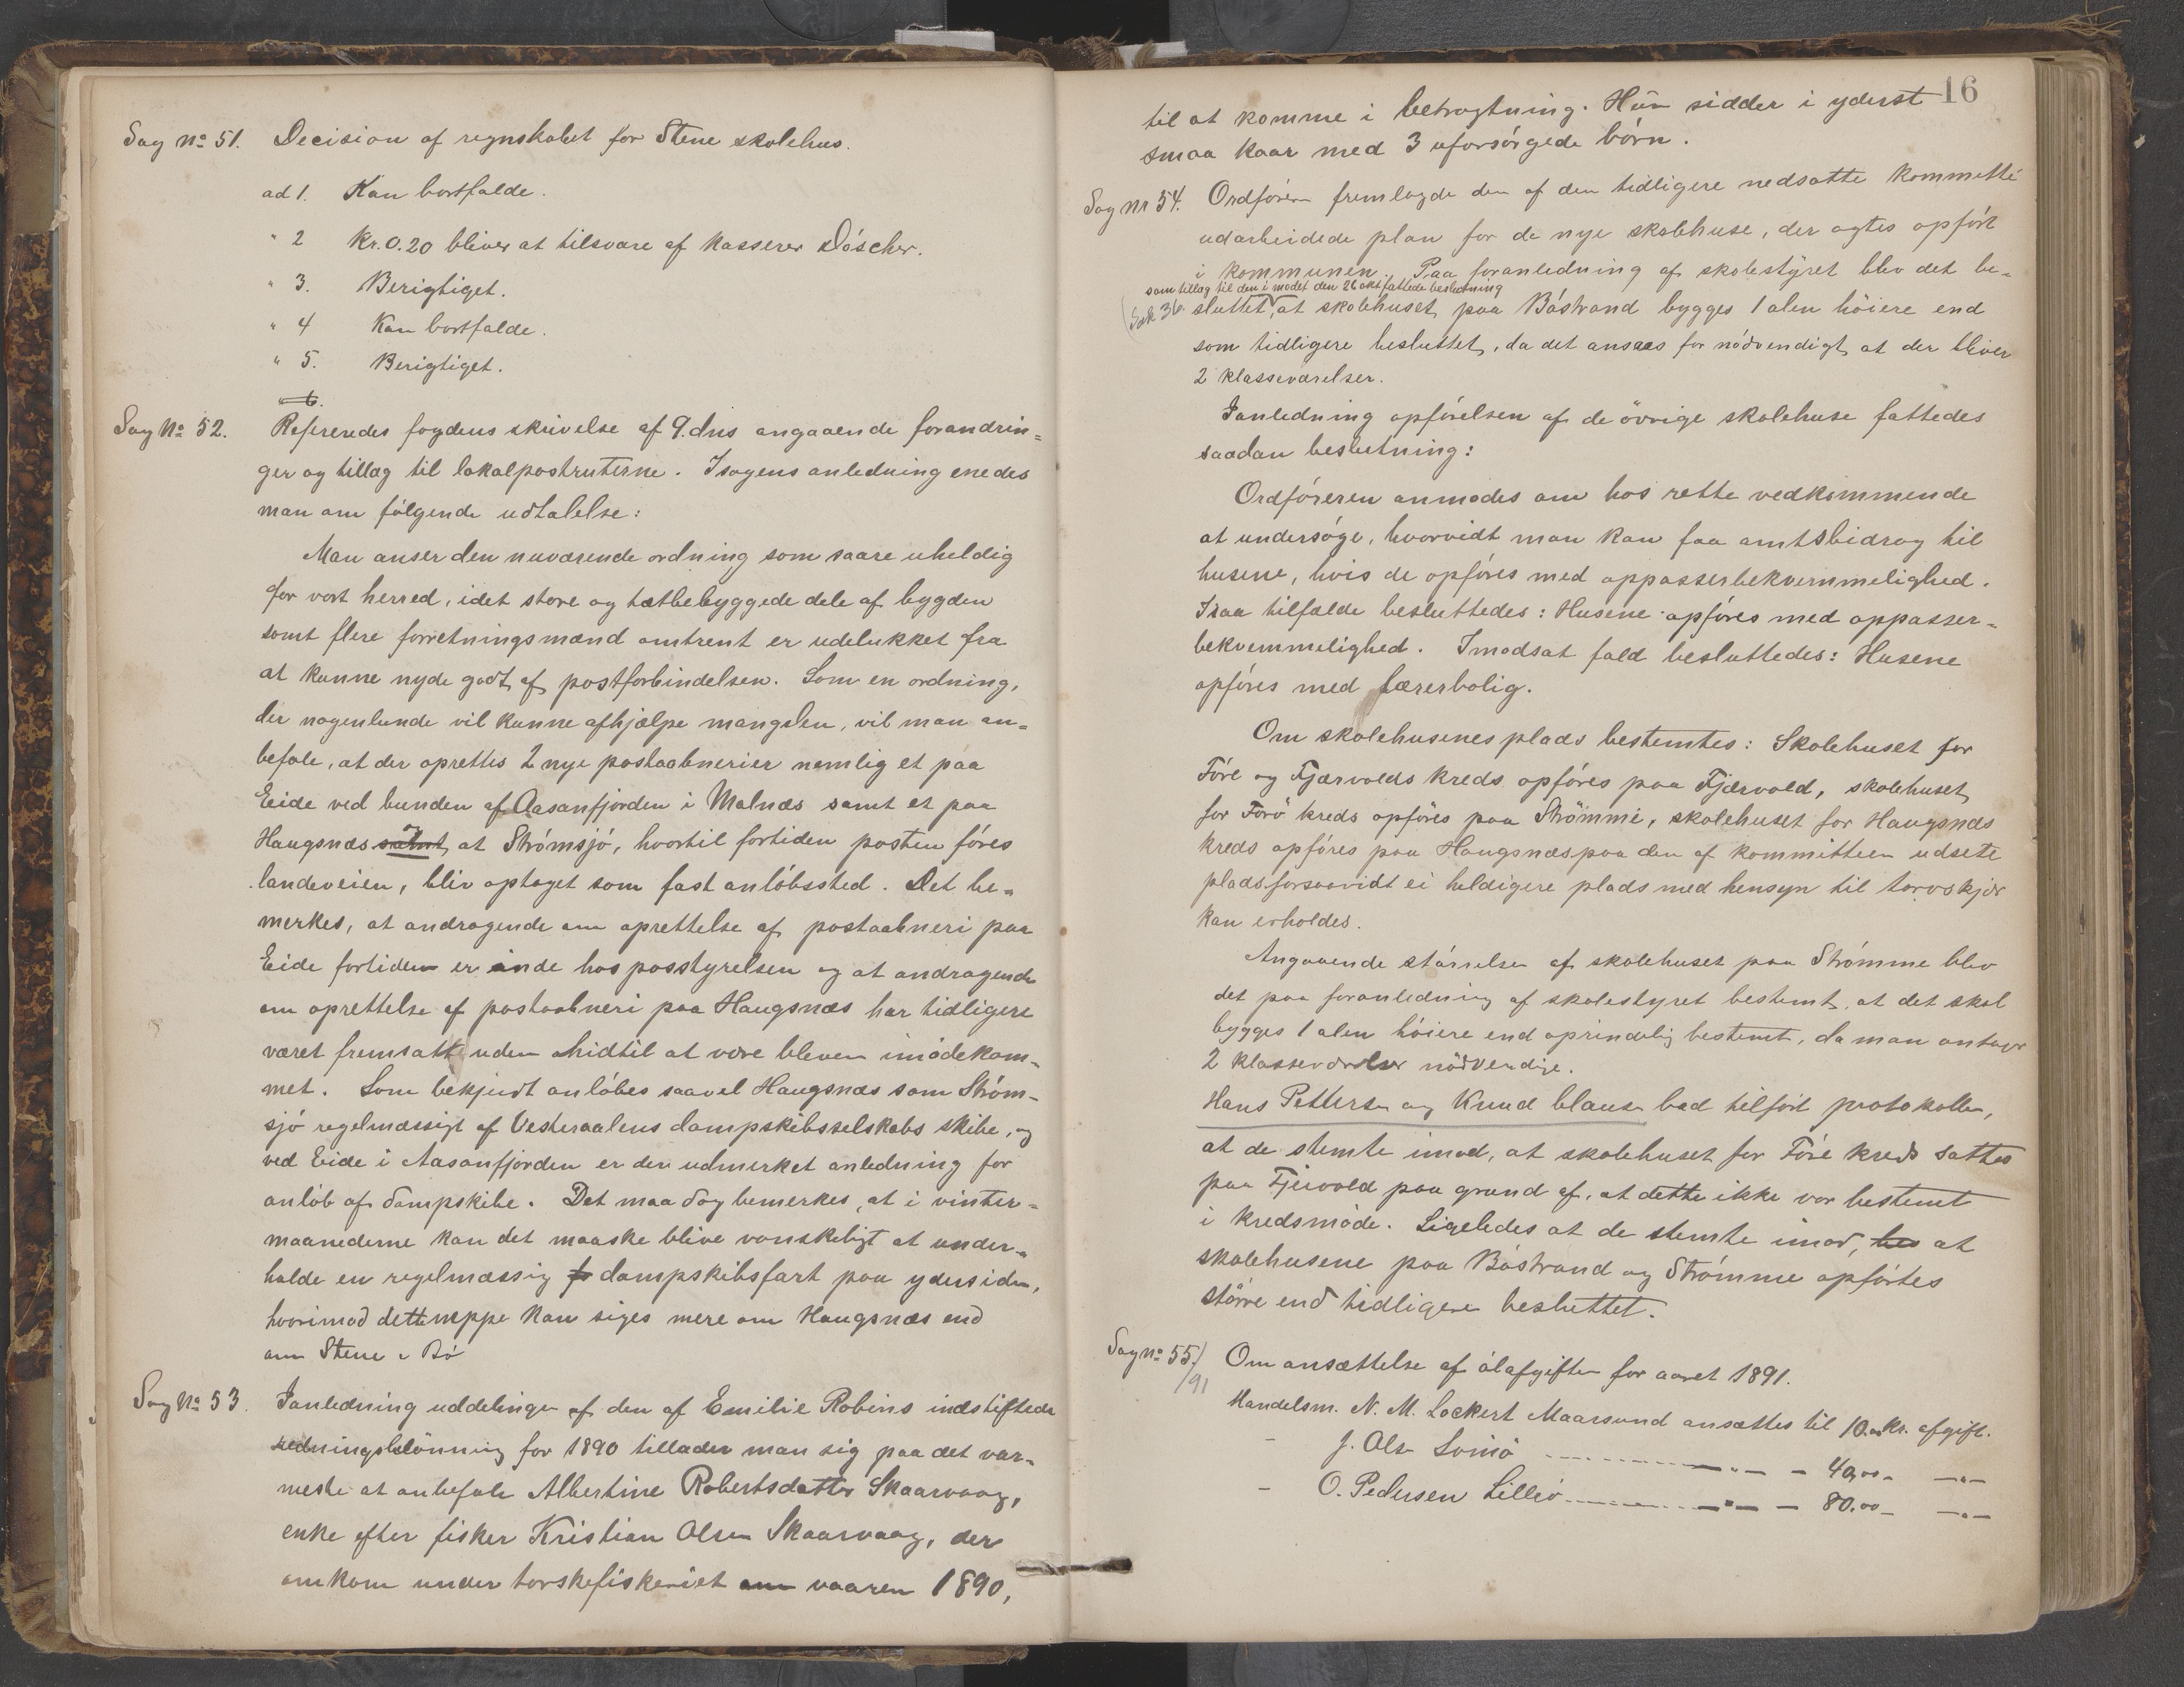 Sag No 51. Decision af regnskabet for Stene skolehus.
ad 1. Kan bortfalde.
" 2 Kr. 0.20 bliver at tilsvare af kasserer Döscher.
" 3. Berigtiget.
" 4 Kan bortfalde.
" 5. Berigtiget.
" 6.
Sag No 52. Refereredes fogdens skrivelse af 9. dns angaaende forandrin=
ger og tillæg til lokalpostruterne. I sagens anledning enedes
man om følgende udtalelse:
Man anser den nuværende ordning som saare uheldig
for vort herred, idet store og tætbebyggede dele af bygden
samt flere forretningsmænd omtrent er udelukket fra
at kunne nyde godt af postforbindelsen. Som en ordning,
der nogenlunde vil kunne afhjælpe mangelen, vil man an=
befale, at der oprettes 2 nye postaabnerier nemlig et paa
Eide ved bunden af Aasanfjorden i Malnæs samt et paa
Haugsnæs samt og at Strömsjö, hvortil fortiden posten föres
landeveien, bliv optaget som fast anlöbssted. Det be=
merkes, at andragende om oprettelse af postaabneri paa
Eide fortiden er inde hos posstyrelsen og at andragende
om oprettelse af postaabneri paa Haugsnæs har tidligere
været fremsatt uden hidtil at være bleven imödekom=
met. Som bekjendt anlöbes saavel Haugsnæs som Ström=
sjö regelmæssigt af Vesteraalens dampskibsselskabs skibe, og
ved Eide i Aasanfjorden er der udmerket anledning for
anlöb af dampskibe. Det maa dog bemerkes, at i vinter=
maanederne kan det maaske blive vanskeligt at under=
holde en regelmæssig dampskibsfart paa ydersiden,
hvorimod dette neppe kan siges mere om Haugsnæs end
om Stene i Bö
Sag No 53. I anledning uddelingen af den af Emilie Robins indstiftede
redningsbelönning for 1890 tillader man sig paa det var=
meste at anbefale Albertine Robertsdatter Skaarvaag,
enke efter fisker Kristian Olsen Skaarvaag, der
omkom under torskefiskeriet om vaaren 1890,
16
til at komme i betragtning. Hun sidder i yderst
smaa kaar med 3 uforsörgede börn.
Sag nr 54. Ordföreren fremlagde den af den tidligere nedsatte kommitté
udarbeidede plan for de nye skolehuse, der agtes opfört
i kommunen. Paa foranledning af skolestyret blev det be=
som tillæg til den i mødet den 26 okt fattede beslutning
(Sak 36. sluttet, at skolehuset paa Böstrand bygges 1 alen höiere end
som tidligere besluttet, da det ansees for nödvendigt at der bliver
2 klasseværelser.
I anledning opförelsen af de övrige skolehuse fattedes
saadan beslutning:
Ordföreren anmodes om hos rette vedkommende
at undersöge, hvorvidt man kan faa amtsbidrag til
husene, hvis de opföres med oppasserbekvemmelighed.
I saa tilfælde besluttedes: Husene opföres med oppasser=
bekvemmelighed. I modsat fald besluttedes: Husene
opföres med lærerbolig.
Om skolehusenes plads bestemtes: Skolehuset for
Före og Fjærvolds kreds opföres paa Fjærvold, skolehuset
for Förö kreds opföres paa Strömme, skolehuset for Haugsnæs
kreds opföres paa Haugsnæs paa den af kommitteen udsete
plads forsaavidt ei heldigere plads med hensyn til torvskjær
kan erholdes.
Angaaende störrelsen af skolehuset paa Strömme blev
det paa foranledning af skolestyret bestemt, at det skal
bygges 1 alen höiere end oprindelig bestemt, da man antager
2 klasseværelser nödvendige.
Hans Pettersen og Knud Clausen bad tilfört protokollen,
at de stemte imod, at skolehuset for Före kreds sattes
paa Fjærvold paa grund af, at dette ikke var bestemt
i kredsmöde. Ligeledes at de stemte imod, at
skolehusene paa Böstrand og Strömme opförtes
större end tidligere besluttet.
Sag no 55/91 Om ansættelse af ölafgiften for aaret 1891.
Handelsm. N. M. Lockert Maarsund ansættes til 10.00 kr. afgift.
- J. Olsen Svinö - " - - 40,00 - - " -
- O. Pedersen Lillö - " - - 80.00 - - " -